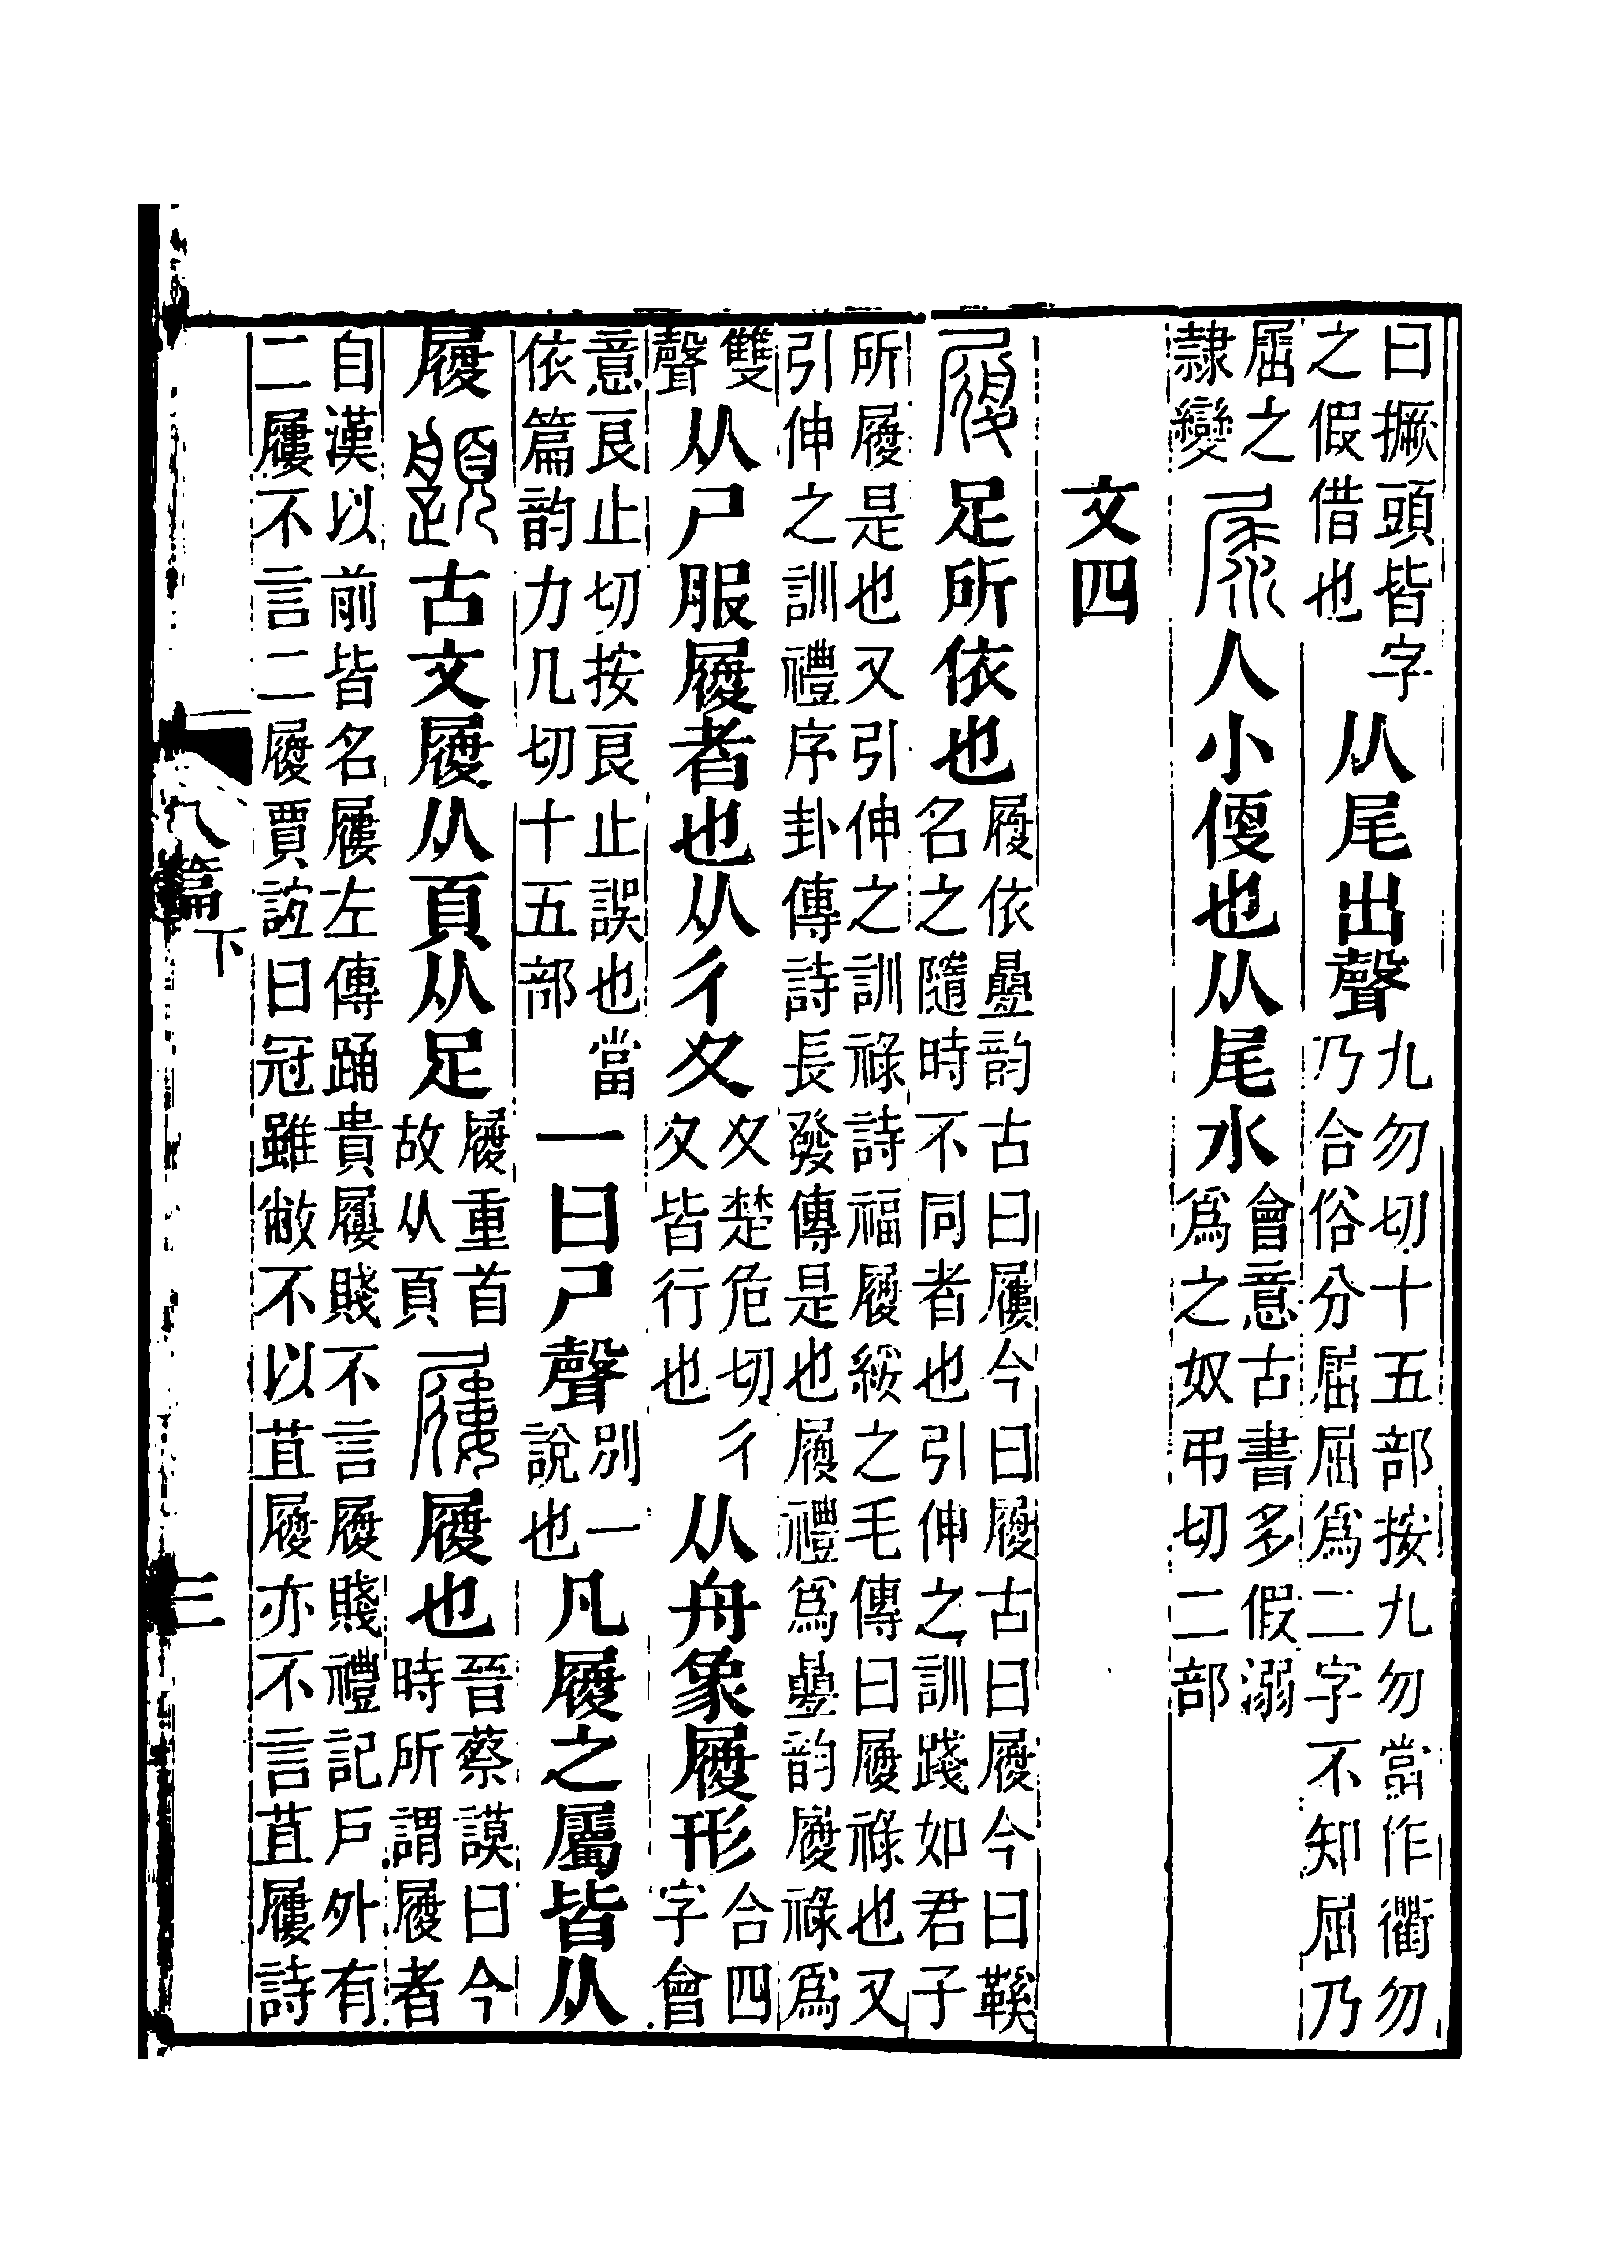 曰撅頭皆字之假借也从尾出聲九勿切十五部按九勿當作衢勿乃合俗分屈屈爲二字不知屈乃
屈之隸變尿人小便也从尾水會意古書多假溺爲之奴弔切二部
文四
履足所依也履依曡韵古曰屨今曰履古曰履今曰鞵名之隨時不同者也引伸之訓踐如君子
所履是也又引伸之訓祿詩福履綏之毛傳曰履祿也又引伸之訓禮序卦傳詩長發傳是也履禮爲曡韵履祿爲
雙聲从尸服履者也从彳夊夊楚危切彳夊皆行也从舟象履形合四字會
意良止切按良止誤也當依篇韵力几切十五部一曰尸聲別一說也凡履之屬皆从
履𩕎古文履从頁从足履重首故从頁屨履也晉蔡謨曰今時所謂履者
自漢以前皆名屨左傳踊貴屨賤不言履賤禮記戶外有二屨不言二履賈誼曰冠雖敝不以苴履亦不言苴屨詩
八篇下 三